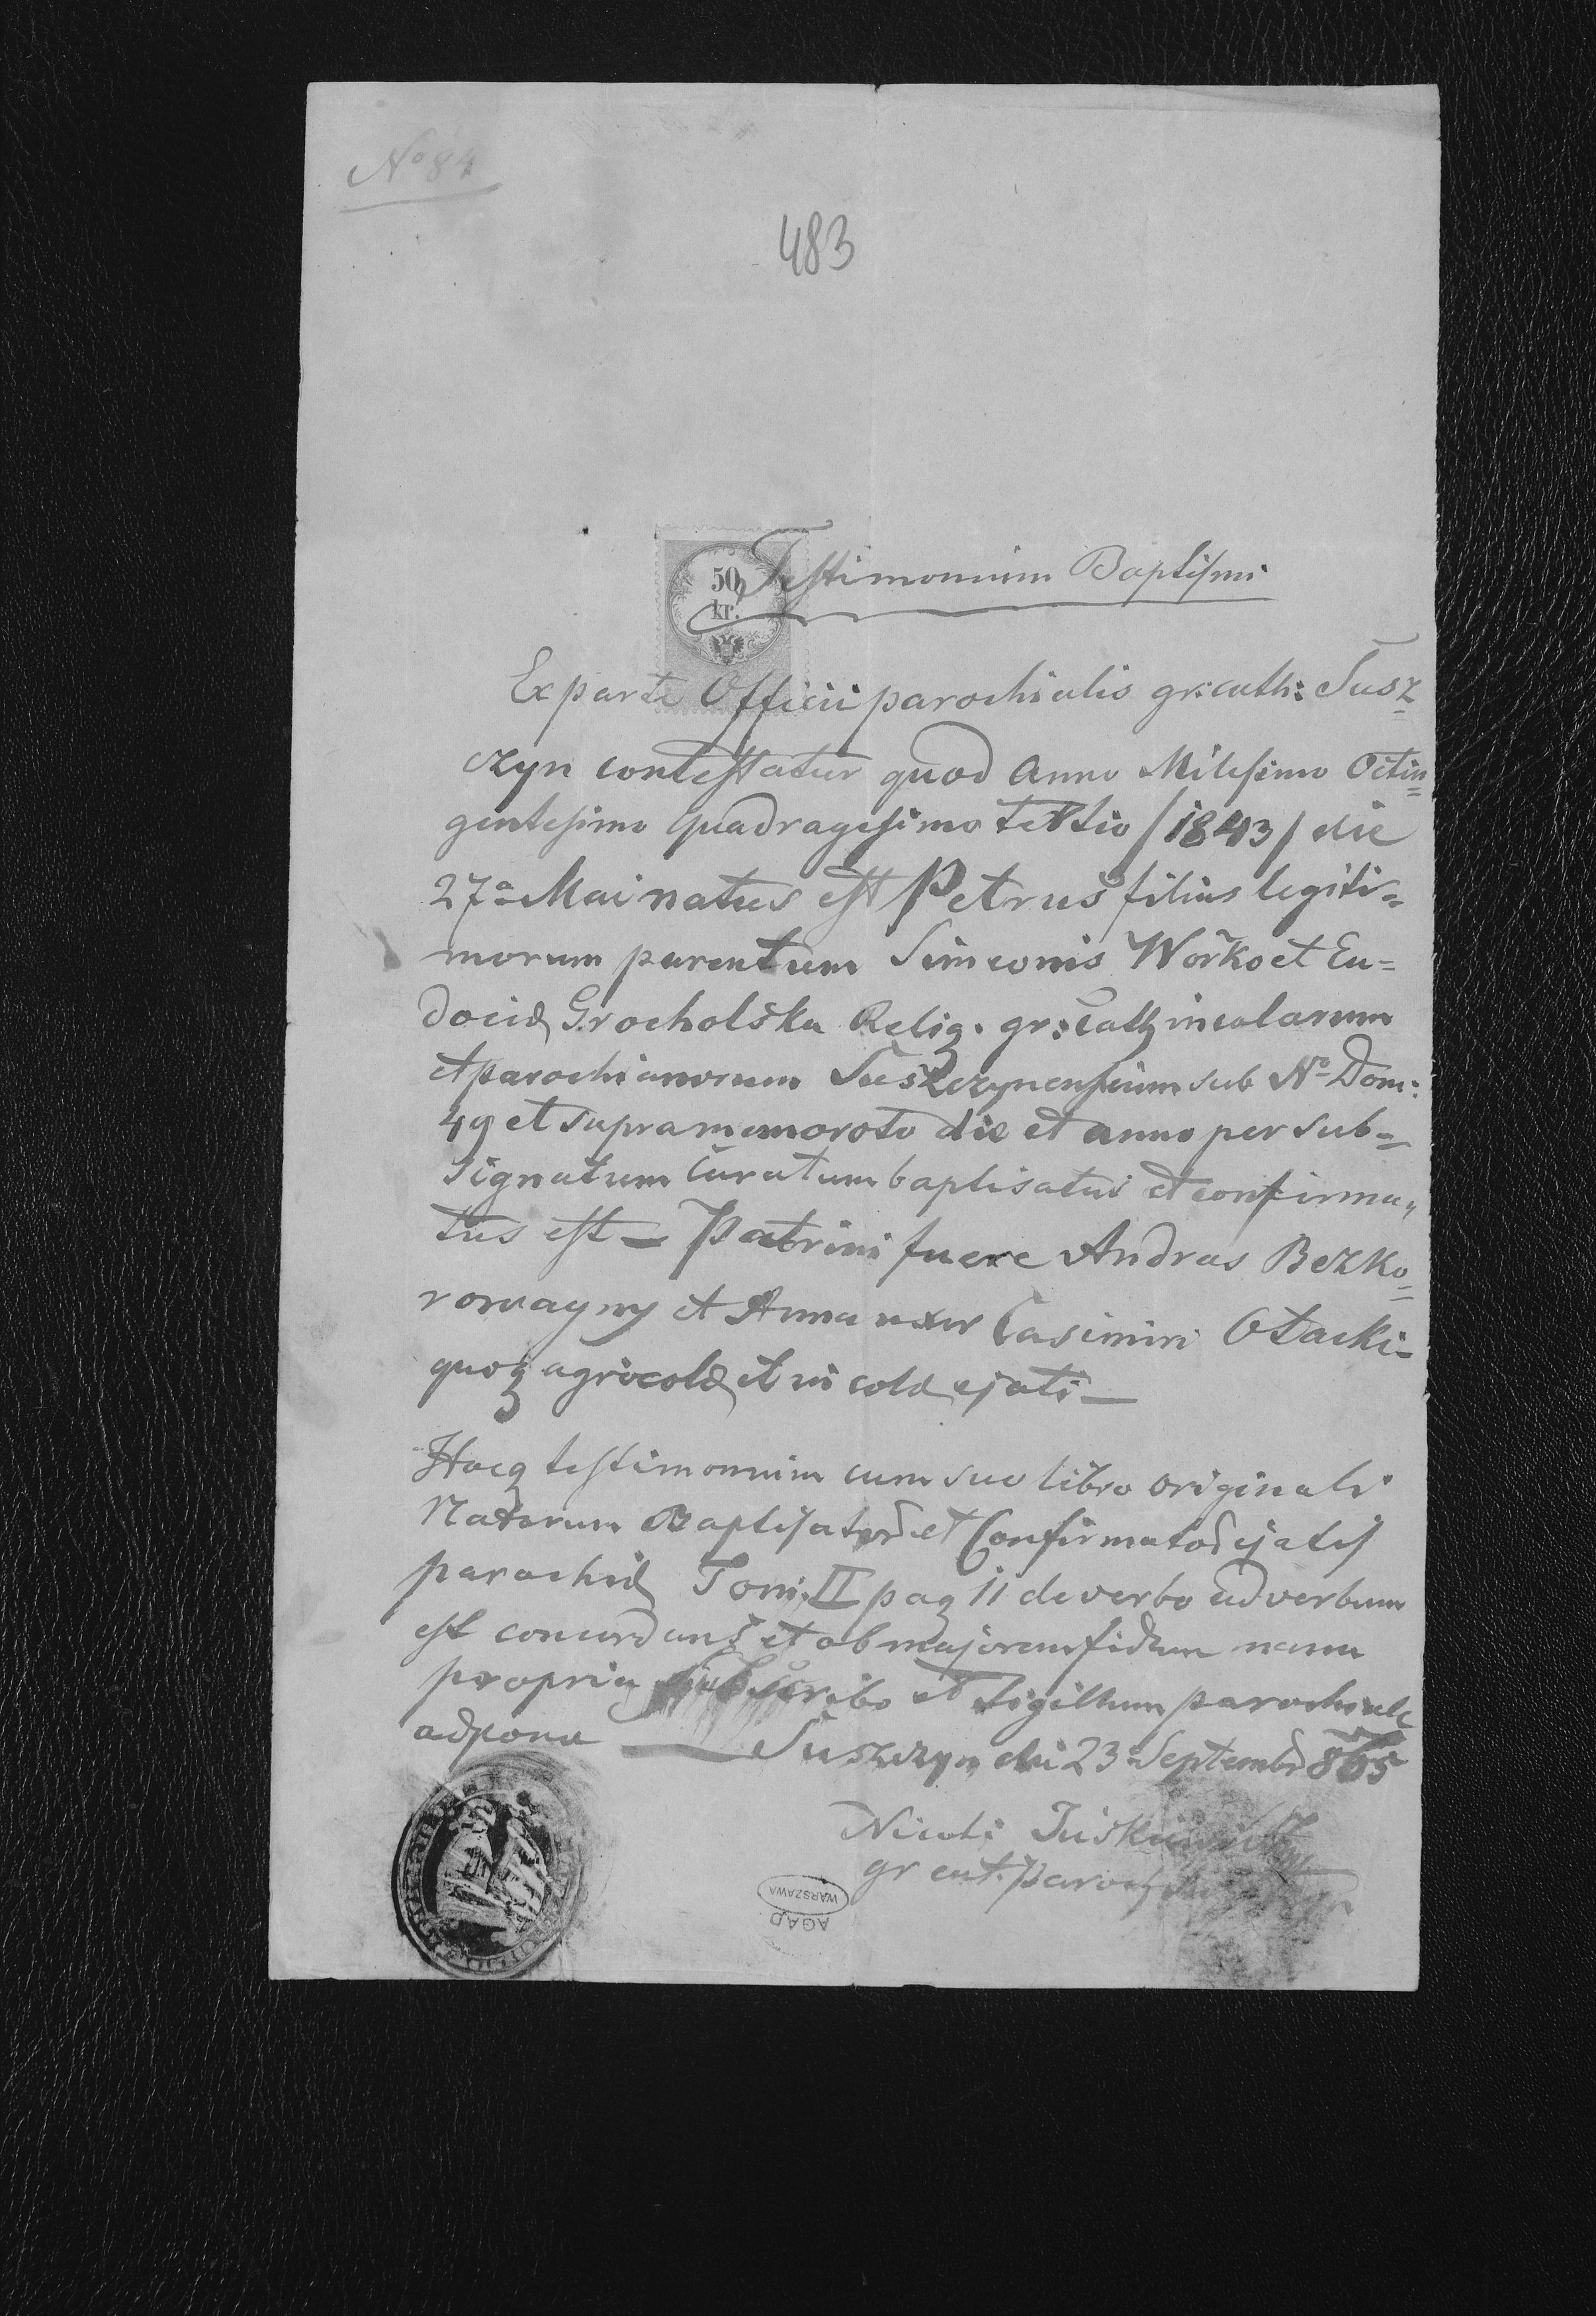 No 84
483
50
kr.
Testimonium Baptismi
Ex parte Officii parochialis gr: cath: Susz=
czyn contestatur quod Anno Milesimo Octin=
gentesimo quadragesimo tertio /1843/ die
27a Mai natus est Petrus filius legiti=
morum parentum Simeonis Worko et Eu=
dociæ Grocholska Relig. gr: Cath incolarum
et parochianorum Suszczynensium sub No Dom:
49 et supramemorato die et anno per sub=
signatum Curatum baptisatus et confirma=
tus est – Patrini fuere Andras Bezko=
rowayny et Anna uxor Casimiri Otacki –
quoq agricolæ et incolæ ejati –
Hocq testimonium cum suo libro originali
Natorum Baptisator et Confirmator ejatis
parochiæ Tom. II pag 11 de verbo ad verbum
est concordans et ob majorem fidem manu
propria subscribo et sigillum parochiale
adpono — Suszczyn die 23 Septembr 865
Nicoli
gr cat. paroch
AGAD
WARSZAWA